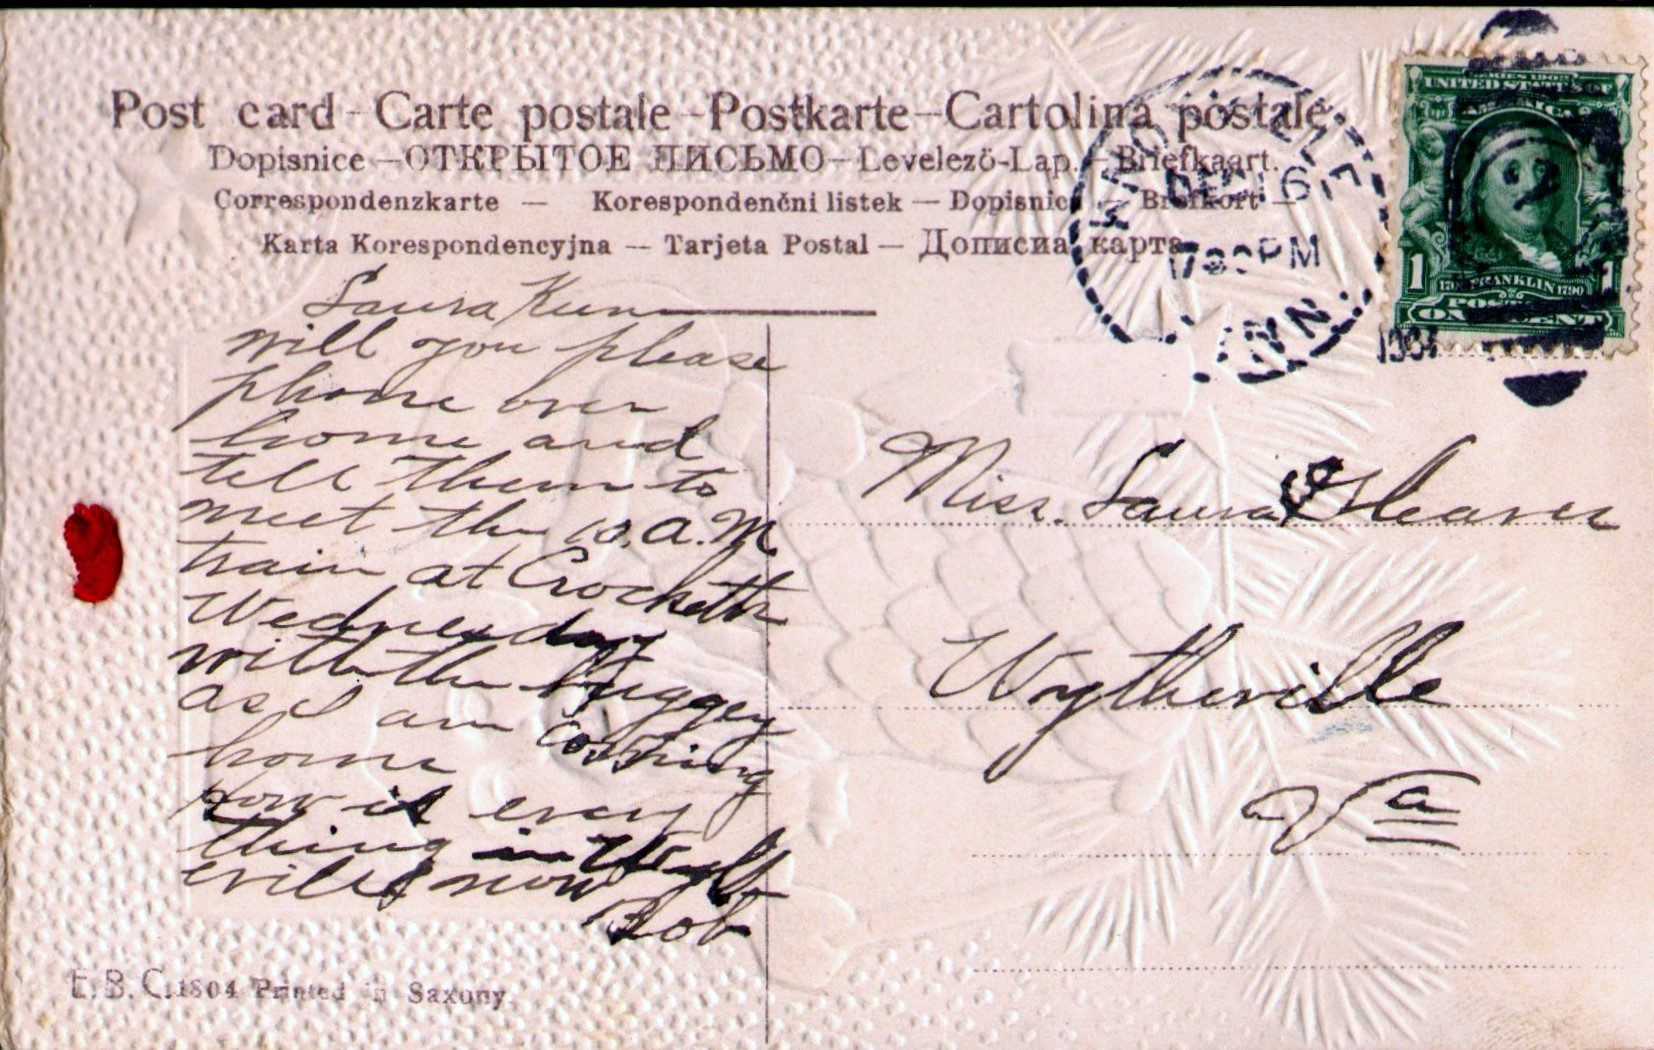 Post card - Carte postale - Postkarte - Cartolina postale
Dopisnice - ОТКРЫТОЕ ПИСЬМО - Levelezö-Lap. - Briefkaart.
Correspondenzkarte — Korespondenčni listek — Dopisnic — Brefkort —
Karta Korespondencyjna — Tarjeta Postal — Дописна карта
KNOXVILLE
DEC 16
730PM
TENN.
190
SERIES 1902
UNITED STATES OF
AMERICA
1706 FRANKLIN 1790
1 1
POSTAGE
ONE CENT
Laura
will you please
phone over
home and
tell them to
meet the 10. A.M
train at Crockett
Wednesday
with the buggey
as I am comming
home
How is every
thing in Wyth
eville now
Bob
Miss. Laura
Wytheville
Va
E. B. C. 1804 Printed in Saxony.